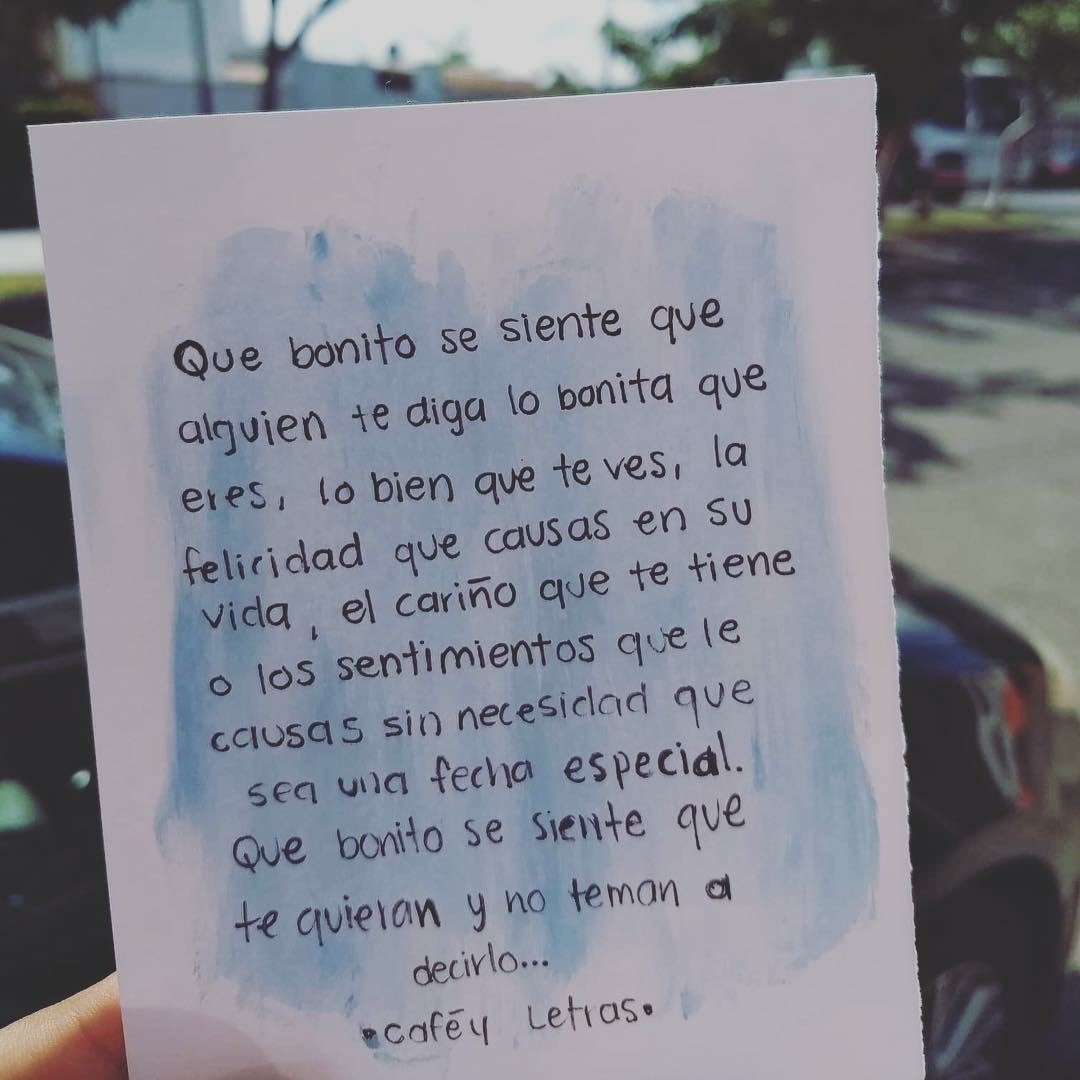 Que bonito se siente que
alguien te diga lo bonita que
eres, lo bien que te ves, la
felicidad que causas en su
vida, el cariño que te tiene
o los sentimientos que le
causas sin necesidad que
sea una fecha especial.
Que bonito se siente que
te quieran y no teman a
decirlo...
•café y Letras•